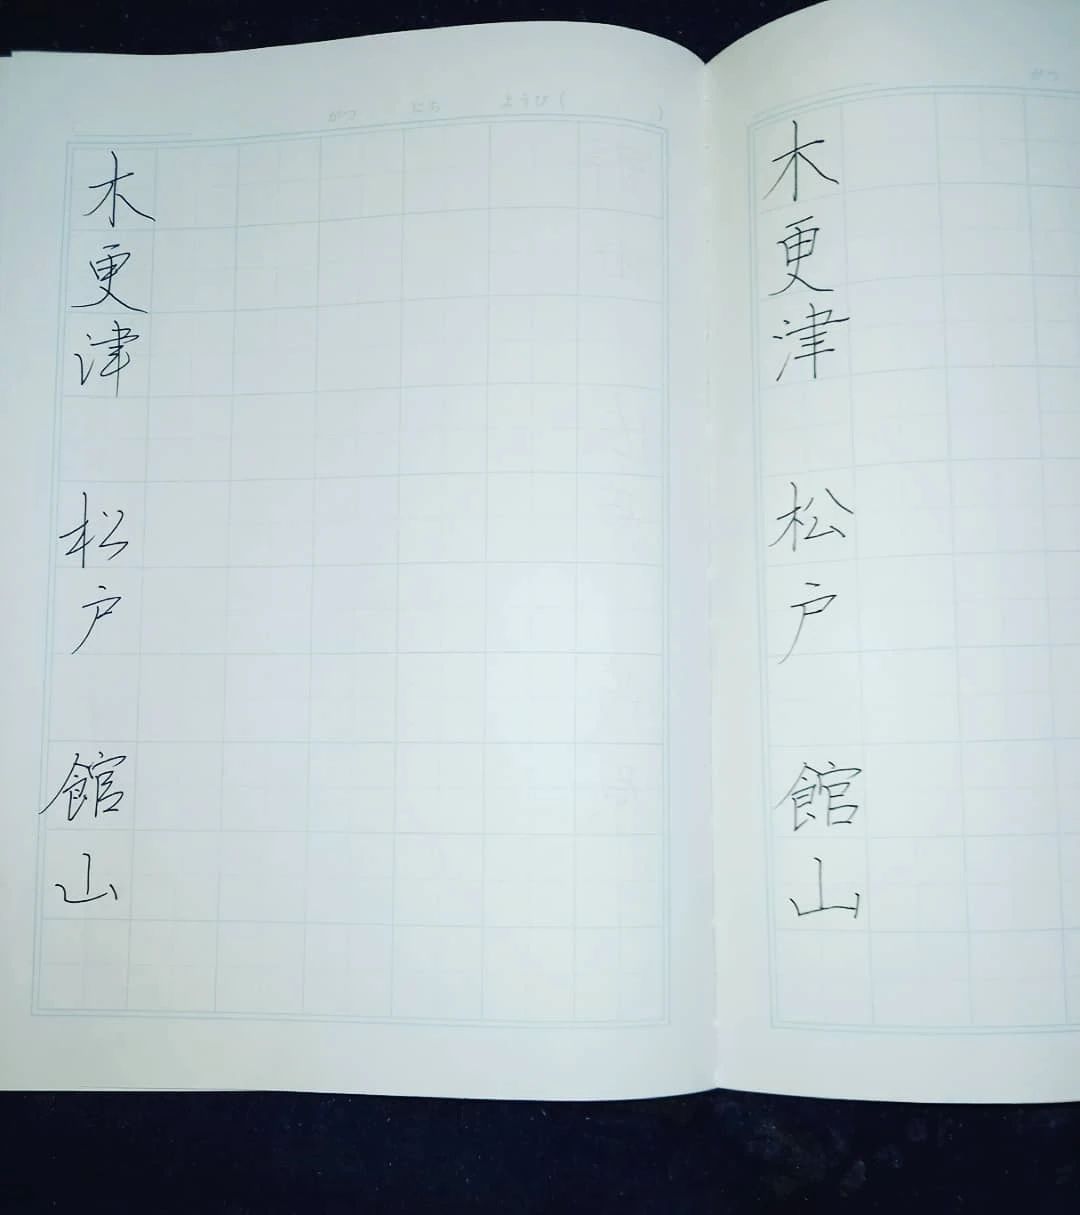 がつ にち ようび( )
木更津
松戸
館山
がつ
木更津
松戸
館山